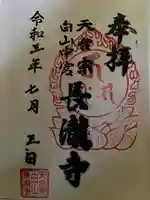 奉拝
天台宗
白山中宮
長瀧寺
令和三年七月三日